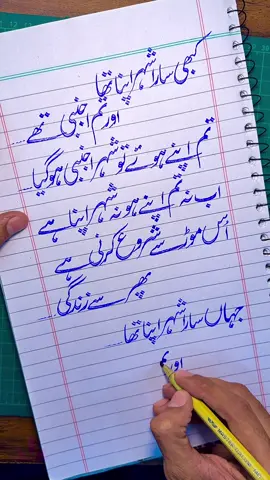 کبھی سارا شہر اپنا تھا
اور تم اجنبی تھے....
تم اپنے ہوئے تو شہر اجنبی ہوگیا....
اب نہ تم اپنے ہو نہ شہر اپنا ہے
اُس موڑ سے شروع کرنی ہے
پھر سے زندگی....
جہاں سارا شہر اپنا تھا
اور